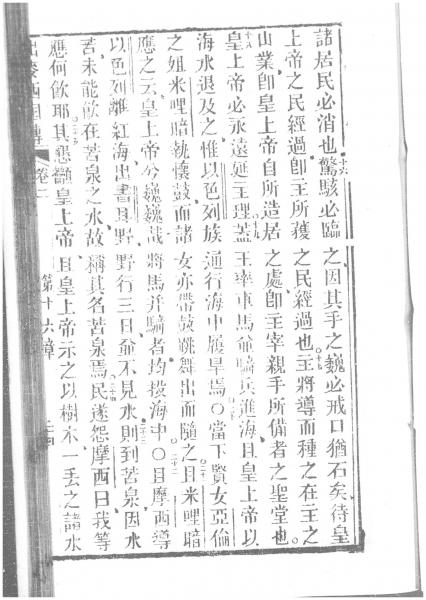 諸居民必消也十六驚駭必臨之因其手之巍必戒口猶石矣待皇
上帝之民經過即主所獲之民經過也十七主將導而種之在主之
山業即皇上帝自所造居之處即主宰親手所備者之聖堂也
十八皇上帝必永遠延王理十九蓋王率車馬爺騎兵進海且皇上帝以
海水退及之惟以色列族通行海中履旱焉○當下賢女亞倫
之姐米哩暗執懷鼓而諸女亦帶鼓跳舞出而隨之二十一且米哩暗
應之云皇上帝兮巍巍哉將馬并騎者均投海中○二十二且摩西導
以色列離紅海出書耳野野行三日爺不見水二十三則到苦泉因水
苦未能飲在苦泉之水故稱其名苦泉焉二十四民遂怨摩西曰我等
應何飲耶二十五其懇籲皇上帝且皇上帝示之以樹木一丟之諸水
出麥西國傳 卷二 第十六章